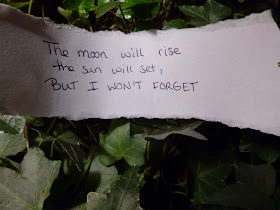 The moon will rise
the sun will set,
BUT I WON'T FORGET